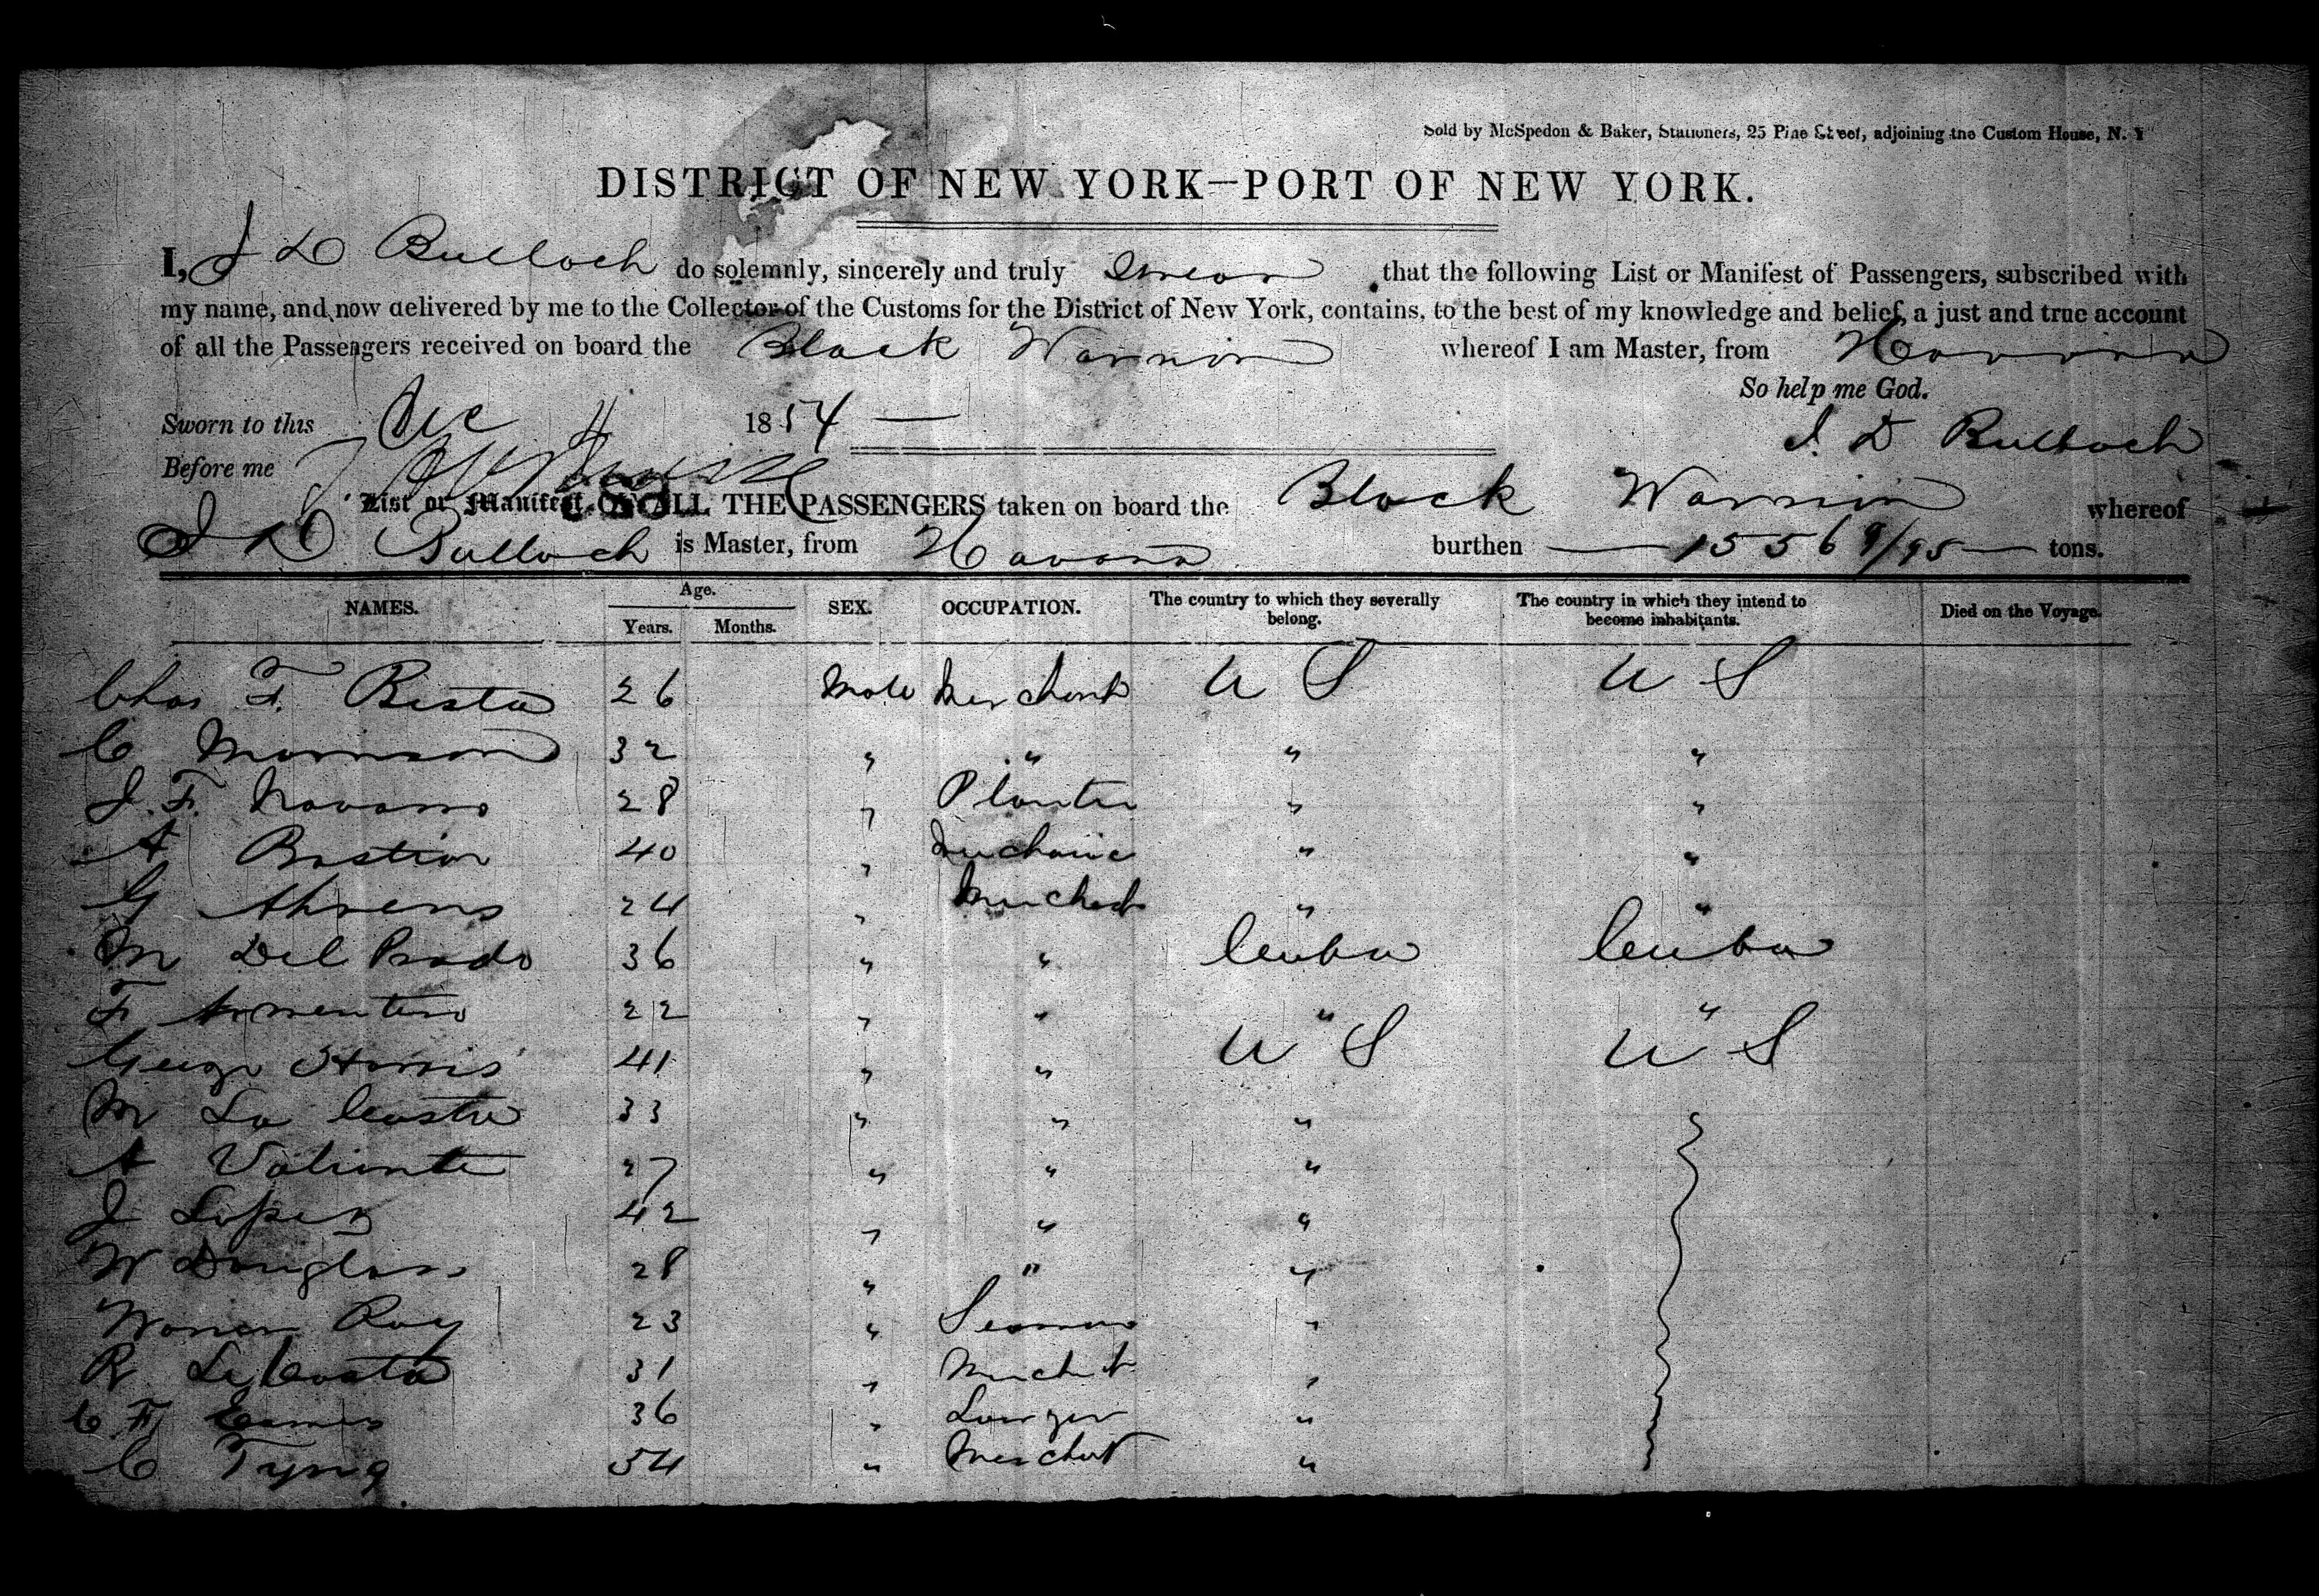 Sold by McSpedon & Baker, Stationers, 25 Pine Street, adjoining the Custom House, N. Y
DISTRICT OF NEW YORK—PORT OF NEW YORK.
I, J D Bulloch do solemnly, sincerely and truly swear that the following List or Manifest of Passengers, subscribed with
my name, and now delivered by me to the Collector of the Customs for the District of New York, contains, to the best of my knowledge and belief, a just and true account
of all the Passengers received on board the Black Warrior whereof I am Master, from Havana
So help me God.
Sworn to this Dec 4 1854 J. D Bulloch
Before me
List or Manifest OF ALL THE PASSENGERS taken on board the Black Warrior whereof
J D Bulloch is Master, from Havana burthen 1556 9/95 tons.
NAMES. Age. Years. Months. SEX. OCCUPATION. The country to which they severally belong. The country in which they intend to become inhabitants. Died on the Voyage.
Chas F. Besta 26 Male Merchant U S U S
C Morrison 32 " " " "
J. F. Navarro 28 " Planter " "
A Bastian 40 " Mechanic " "
G Ahrens 24 " Merchant " "
M Del Prado 36 " " Cuba Cuba
F Armentero 22 " " " "
George Harris 41 " " U S U S
M La Costa 33 " " "
A Valiente 27 " " "
J Lopez 42 " " "
W Douglass 28 " " "
Warren Ray 23 " Seaman "
R La Costa 31 " Merchet "
C F Eames 36 " Lawyer "
C Tyng 54 " Merchat "